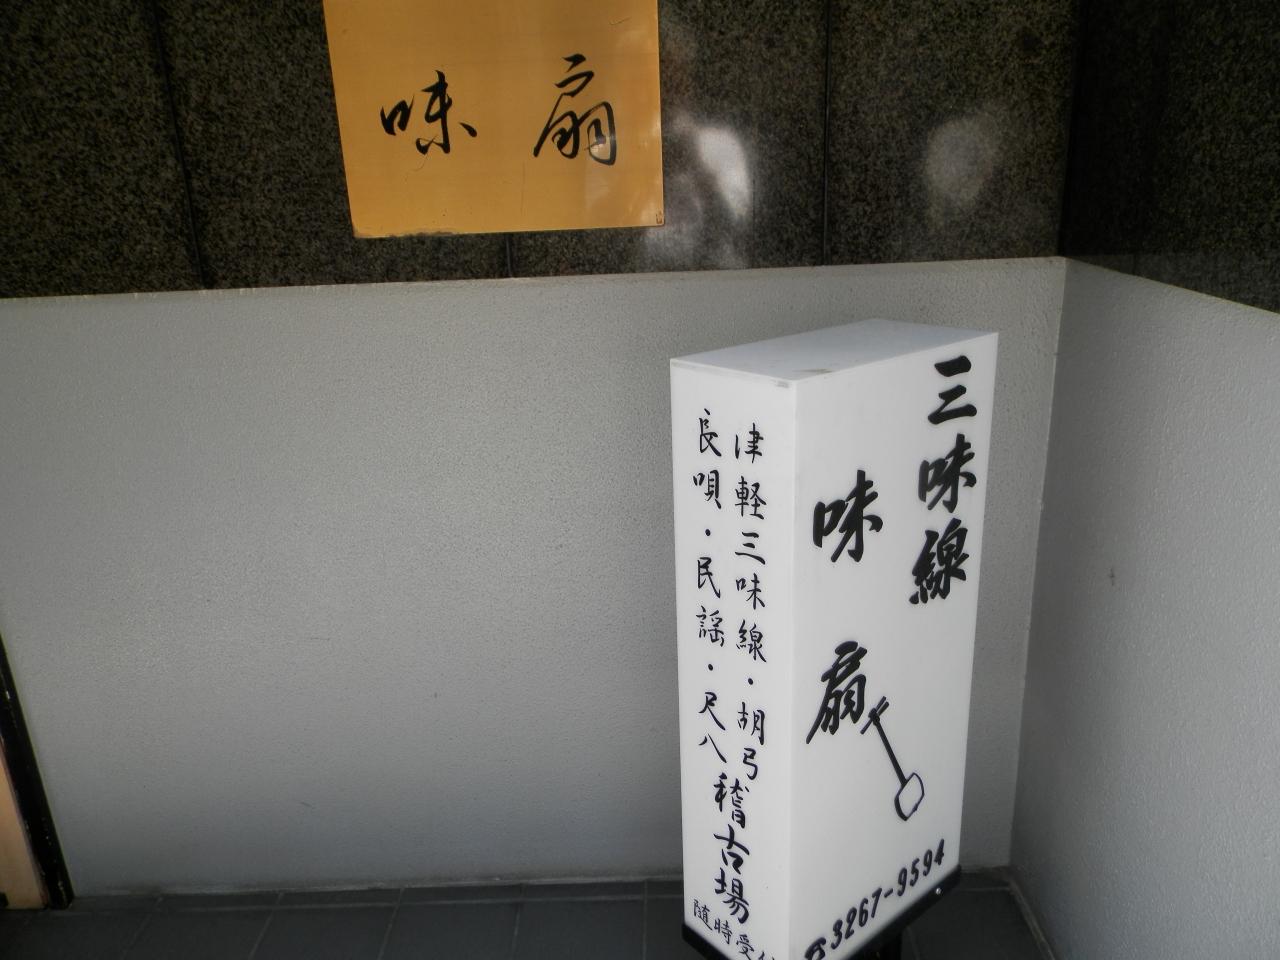 味扇
三味線
味扇
☎3267-9594
津軽三味線・胡弓
長唄・民謡・尺八
稽古場
随時受付